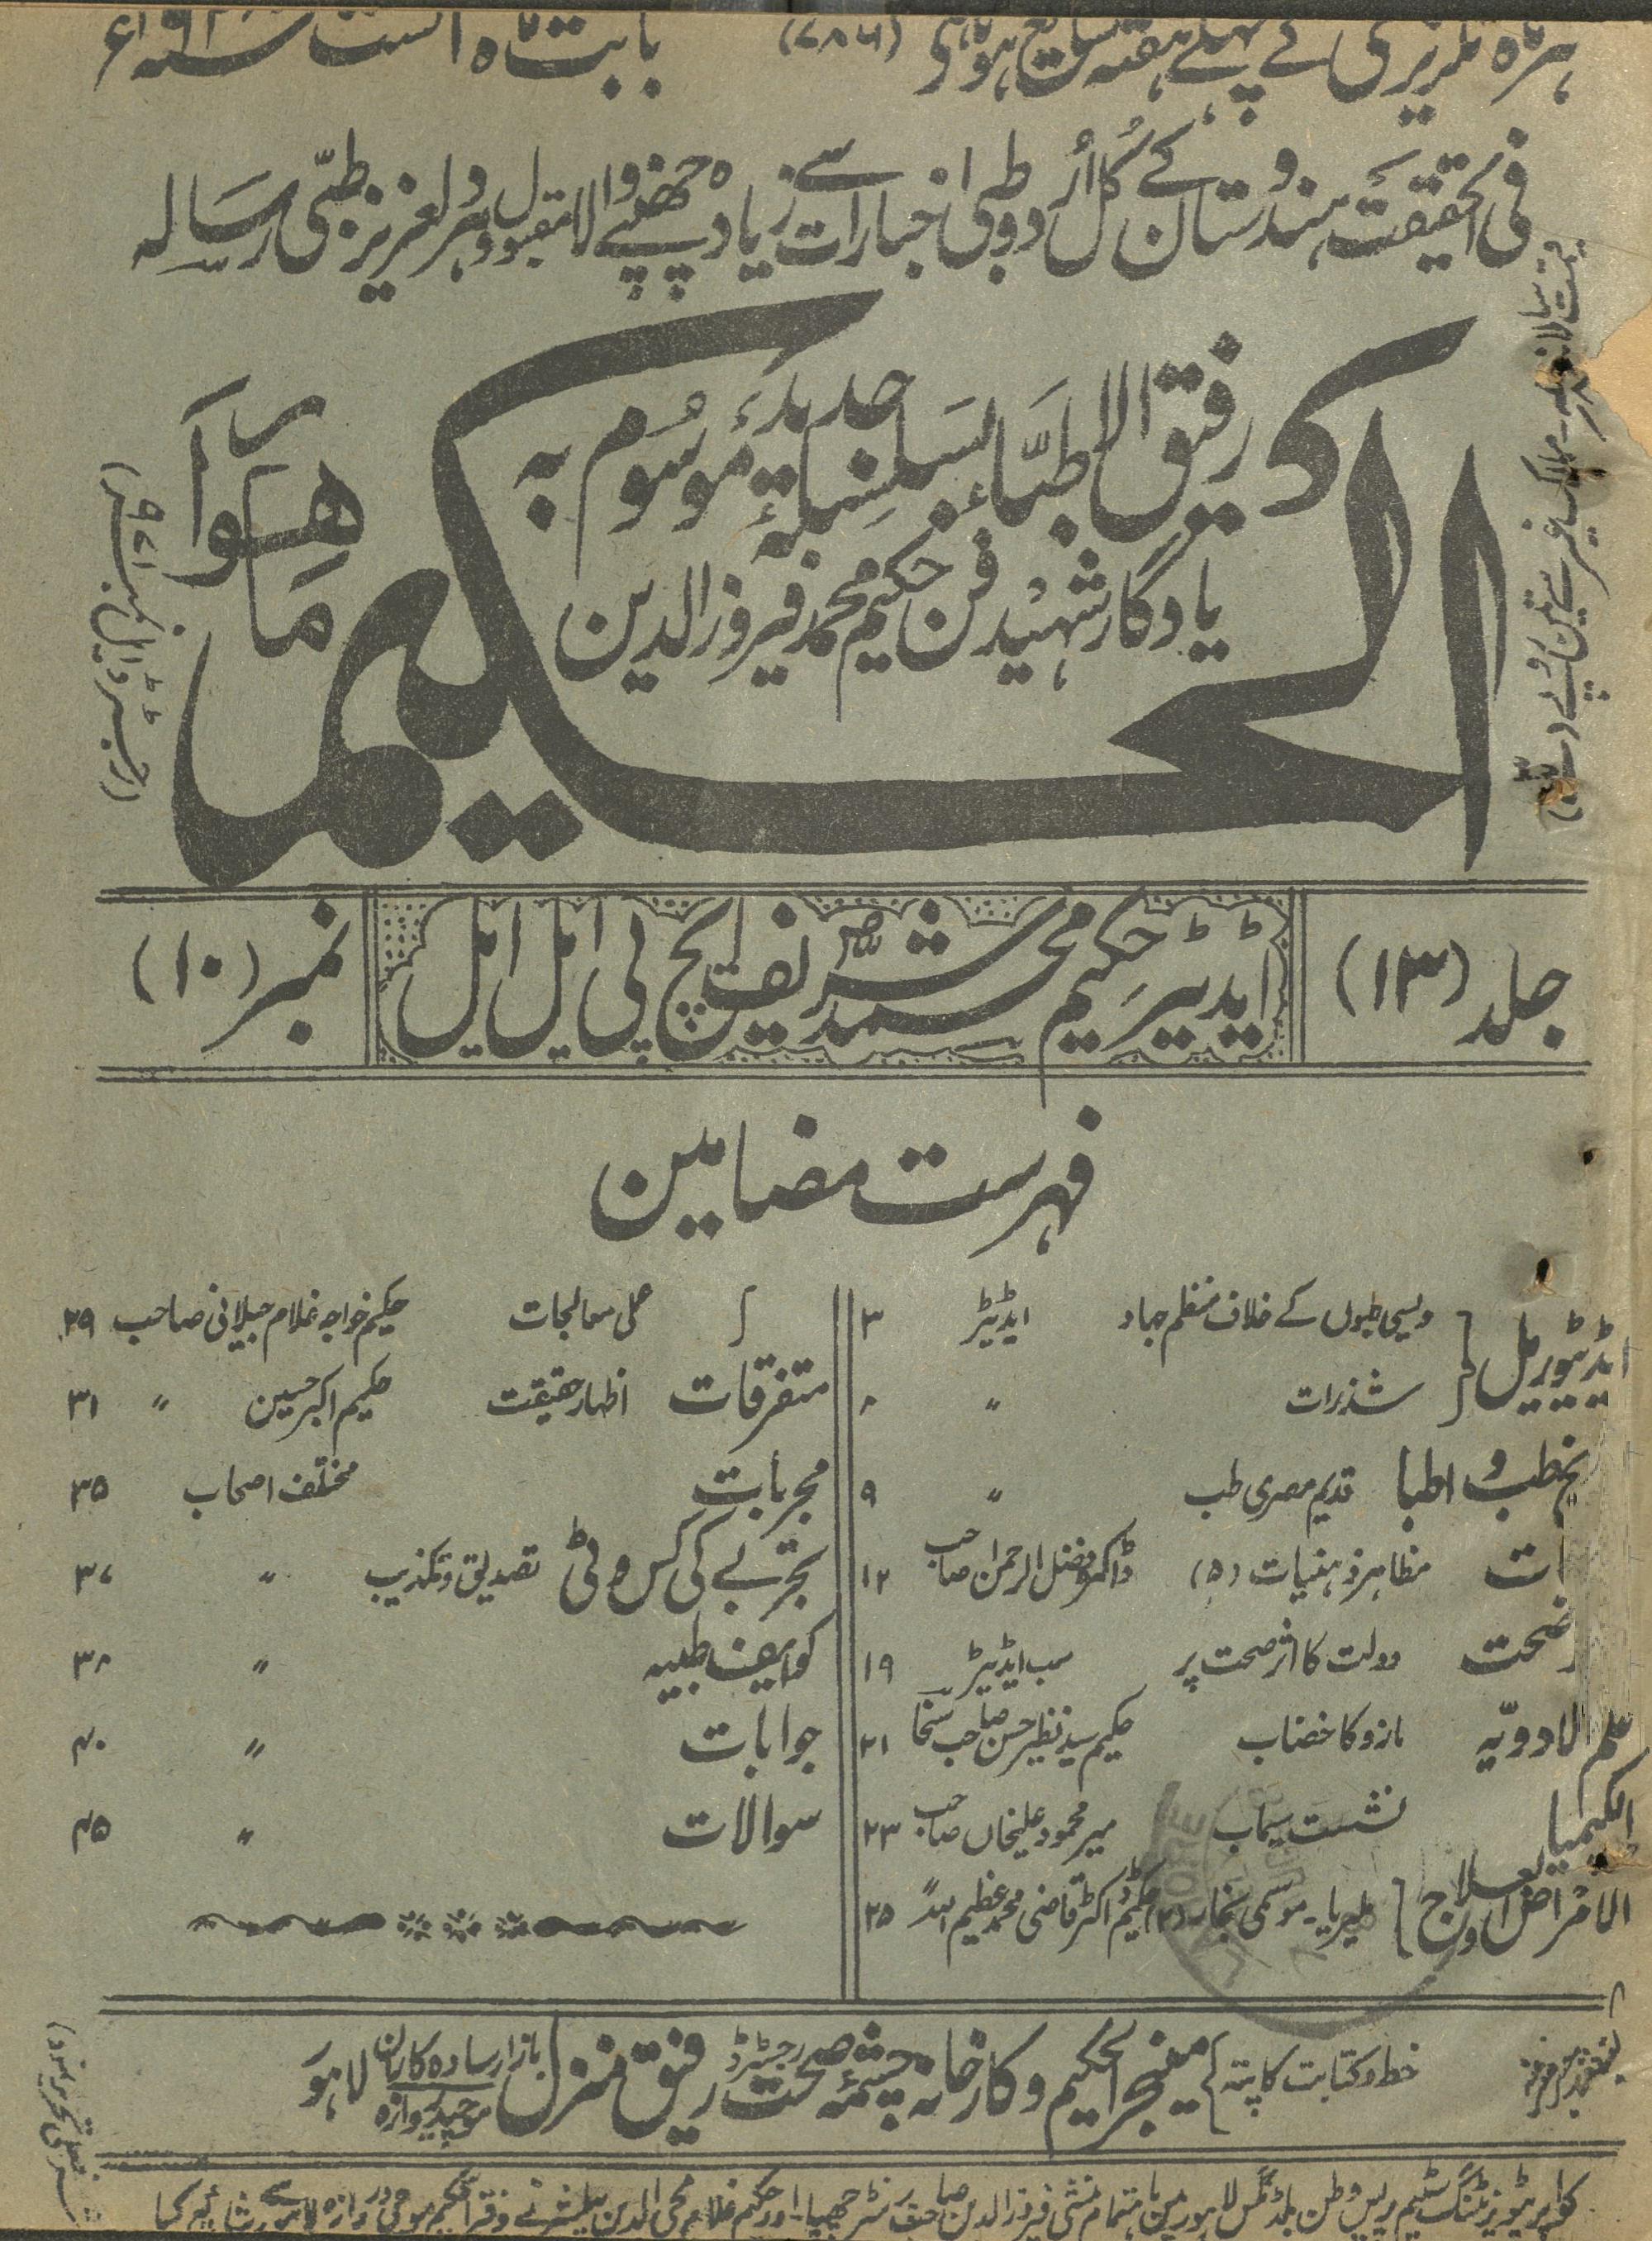 ہر ماہ انگریزی کے پہلے ہفتہ شایع ہوتا ہے (۷۸۶) بابت ماہ اگست
فی الحقیقت ہندوستان کے کُل اُردو طبی اخبارات سے زیادہ چھپنے والا مقبول و ہر لعزیز طبّی رسالہ
الحکیم
ماہوار
رفیق الاطبّاء بسلسلہ جدیدہ موسُوم بہ
یادگار شہید فن حکیم محمد فیروزالدین
جلد (۱۳)
ایڈیٹر حکیم محمد شریف ایچ پی ایل ایل
نمبر (۱۰)
فہرست مضامین
ایڈیٹوریل دیسی طبوں کے خلاف منظم جہاد ایڈیٹر ۳
شذرات " ۸
طب و اطبا قدیم مصری طب " ۹
ات مظاہر ذہنیات (۵) ڈاکٹر فضل الرحمن صاحب ۱۲
صحت دولت کا اثر صحت پر سب ایڈیٹر ۱۹
علم الادویّہ مازو کا خضاب حکیم سید نظیر حسن صاحب سخا ۲۱
الکیمیا نشست سیماب میر محمود علیخاں صاحب ۲۳
الامراض والعلاج ملیریا۔ موسمی بخار (۲) حکیم ڈاکٹر قاضی محمد عظیم اللہ ۲۵
عملی معالجات حکیم خواجہ غلام جیلانی صاحب ۲۹
متفرقات اظہار حقیقت حکیم اکبر حسین " ۳۱
مجربات مختلف اصحاب ۳۵
تجربے کی کسوٹی تصدیق و تکذیب " ۳۷
کوایف طبیہ " ۳۸
جوابات " ۴۰
سوالات " ۴۵
خط و کتابت کا پتہ مینجر الحکیم و کارخانہ چشمۂ صحت رجسٹرڈ رفیق منزل بازار سادہ کاران موچیدروازہ لاہور
کواپریٹو پرنٹنگ سٹیم پریس وطن بلڈنگس لاہور میں باہتمام منشی فیروزالدین صاحب پرنٹر چھپا۔ اور حکیم غلام محی الدین پبلشر نے دفتر الحکیم موچی دروازہ لاہور سے شائع کیا